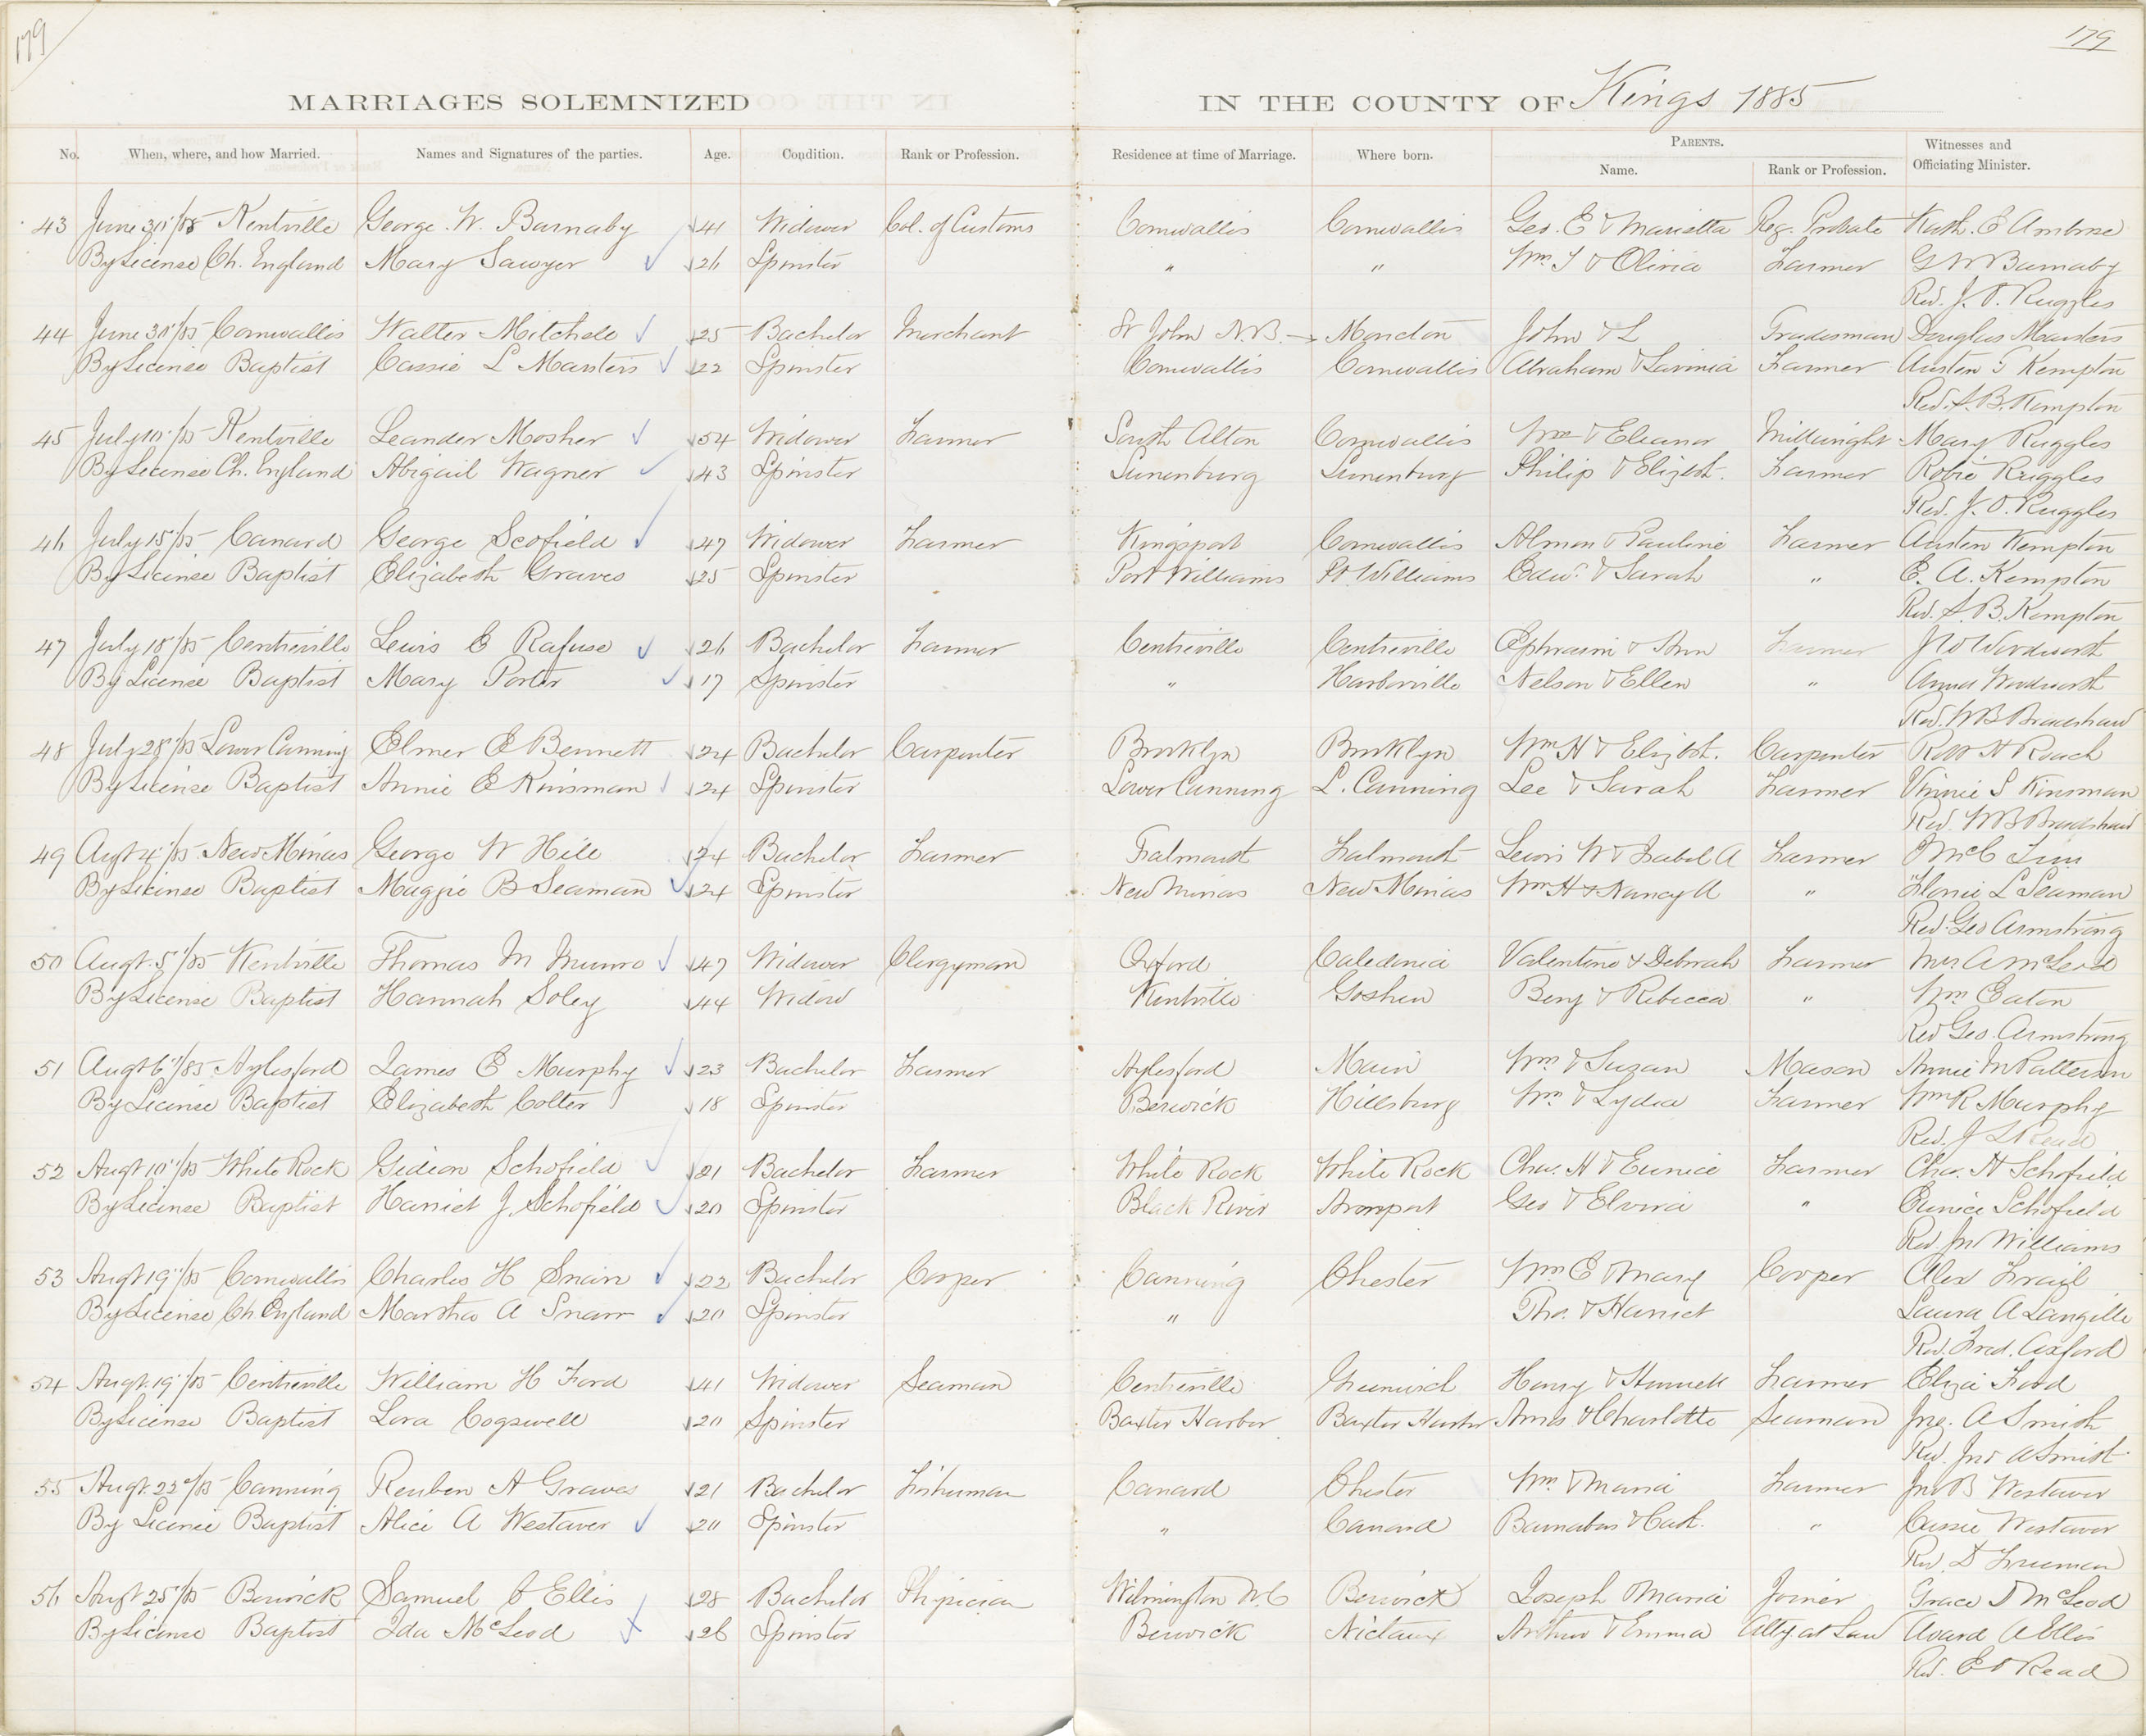 179
179
MARRIAGES SOLEMNIZED IN THE COUNTY OF Kings 1885
No. When, where, and how Married. Names and Signatures of the parties. Age. Condition. Rank or Profession. Residence at time of Marriage. Where born. PARENTS. Name. Rank or Profession. Witnesses and Officiating Minister.
43 June 30/85 Kentville George W. Barnaby 41 Widower Col. of Customs Cornwallis Cornwallis Geo. E & Marietta Reg. Probate Kath. E Ambrose
By License Ch. England Mary Sawyer 26 Spinster " " Wm J & Olivia Farmer G W Barnaby
Rev. J. O. Ruggles
44 June 30/85 Cornwallis Walter Mitchele 25 Bachelor Merchant St John N.B. Moncton John & L Tradesman Douglas Masters
By License Baptist Cassie L Masters 22 Spinster Cornwallis Cornwallis Abraham & Lavinia Farmer Austen T Kempton
Rev. S. B. Kempton
45 July 10/85 Kentville Leander Mosher 54 Widower Farmer South Alton Cornwallis Wm & Eleanor Millwright Mary Ruggles
By License Ch. England Abigail Wagner 43 Spinster Lunenburg Lunenburg Philip & Elizbth. Farmer Robie Ruggles
Rev. J. O. Ruggles
46 July 15/85 Canard George Scofield 47 Widower Farmer Kingsport Cornwallis Almon & Pauline Farmer Austen Kempton
By License Baptist Elizabeth Graves 25 Spinster Port Williams Pt Williams Edwd. & Sarah " E. A. Kempton
Rev. S. B. Kempton
47 July 18/85 Centreville Lewis E Rafuse 26 Bachelor Farmer Centreville Centreville Ephraim & Ann Farmer J W Woodworth
By License Baptist Mary Porter 17 Spinster " Harborville Nelson & Ellen " Annie Woodworth
Rev. W B Bradshaw
48 July 28/85 Lower Canning Elmer E Bennett 24 Bachelor Carpenter Brooklyn Brooklyn Wm H & Elizbth. Carpenter Robt H Roach
By License Baptist Annie E Kinsman 24 Spinster Lower Canning L. Canning Lee & Sarah Farmer Vinnie S Kinsman
Rev. W B Bradshaw
49 Augt 4/85 New Minas George W Hile 24 Bachelor Farmer Falmouth Falmouth Lewis W & Isabel A Farmer
By License Baptist Maggie B Seaman 24 Spinster New Minas New Minas Wm H & Nancy A " L Seaman
Rev. Geo Armstrong
50 Augt. 5/85 Kentville Thomas M Munro 47 Widower Clergyman Oxford Caledonia Valentine & Deborah Farmer Mrs. A McLeod
By License Baptist Hannah Soley 44 Widow Kentville Goshen Benj & Rebecca " Wm Eaton
Rev Geo. Armstrong
51 Augt 6/85 Aylesford James E Murphy 23 Bachelor Farmer Aylesford Main Wm & Suzan Mason Annie M Patterson
By License Baptist Elizabeth Colter 18 Spinster Berwick Hillsburg Wm & Lydia Farmer Wm R Murphy
Rev. J L Read
52 Augt 10/85 White Rock Gideon Schofield 21 Bachelor Farmer White Rock White Rock Chas. H & Eunice Farmer Chas. H Schofield
By License Baptist Harriet J. Schofield 20 Spinster Black River Avonport Geo & Elvira " Eunice Schofield
Rev. Jno Williams
53 Augt 19/85 Cornwallis Charles H Snair 22 Bachelor Cooper Canning Chester Wm E & Mary Cooper Alex Frail
By License Ch England Martha A Snarr 20 Spinster " Tho. & Harriet Laura A Langille
Rev. Fred. Axford
54 Augt. 19/85 Centreville William H Ford 41 Widower Seaman Centreville Greenwich Henry & Hannah Farmer Eliza Ford
By License Baptist Lora Cogswell 20 Spinster Baxter Harbor Baxter Harbor Amos & Charlotte Seaman Jno. A Smith
Rev. Jno A Smith
55 Augt. 22/85 Canning Reuben A Graves 21 Bachelor Fisherman Canard Chester Wm. & Maria Farmer Jno B Westaver
By License Baptist Alice A Westaver 20 Spinster " Canard Barnabas & Cath. " Cassie Westaver
Rev. D Freeman
56 Augt 25/85 Berwick Samuel C Ellis 28 Bachelor Physician Wilmington N.C Berwick Joseph & Maria Joiner Grace D McLeod
By License Baptist Ida McLeod 26 Spinster Berwick Nictaux Arthur & Emma Atty at Law Avard A Ellis
Rev. E O Read